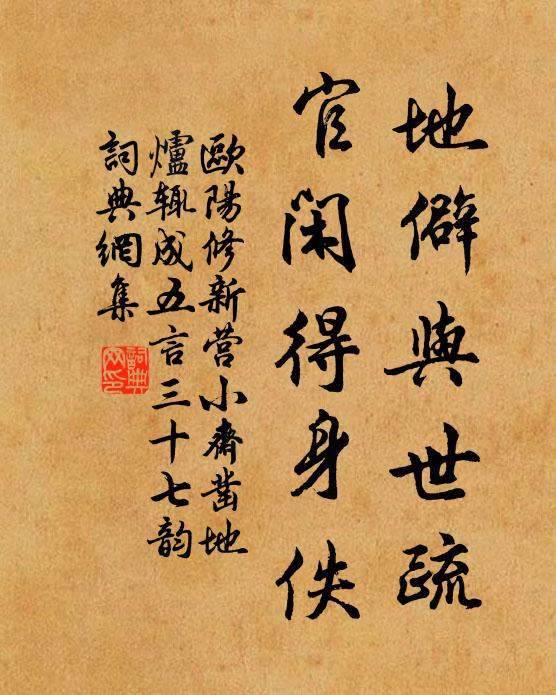 地僻與世疏
官閑得身佚
歐陽修新營小齋凿地
爐輒成五言三十七韵
詞典網集
詞典網印